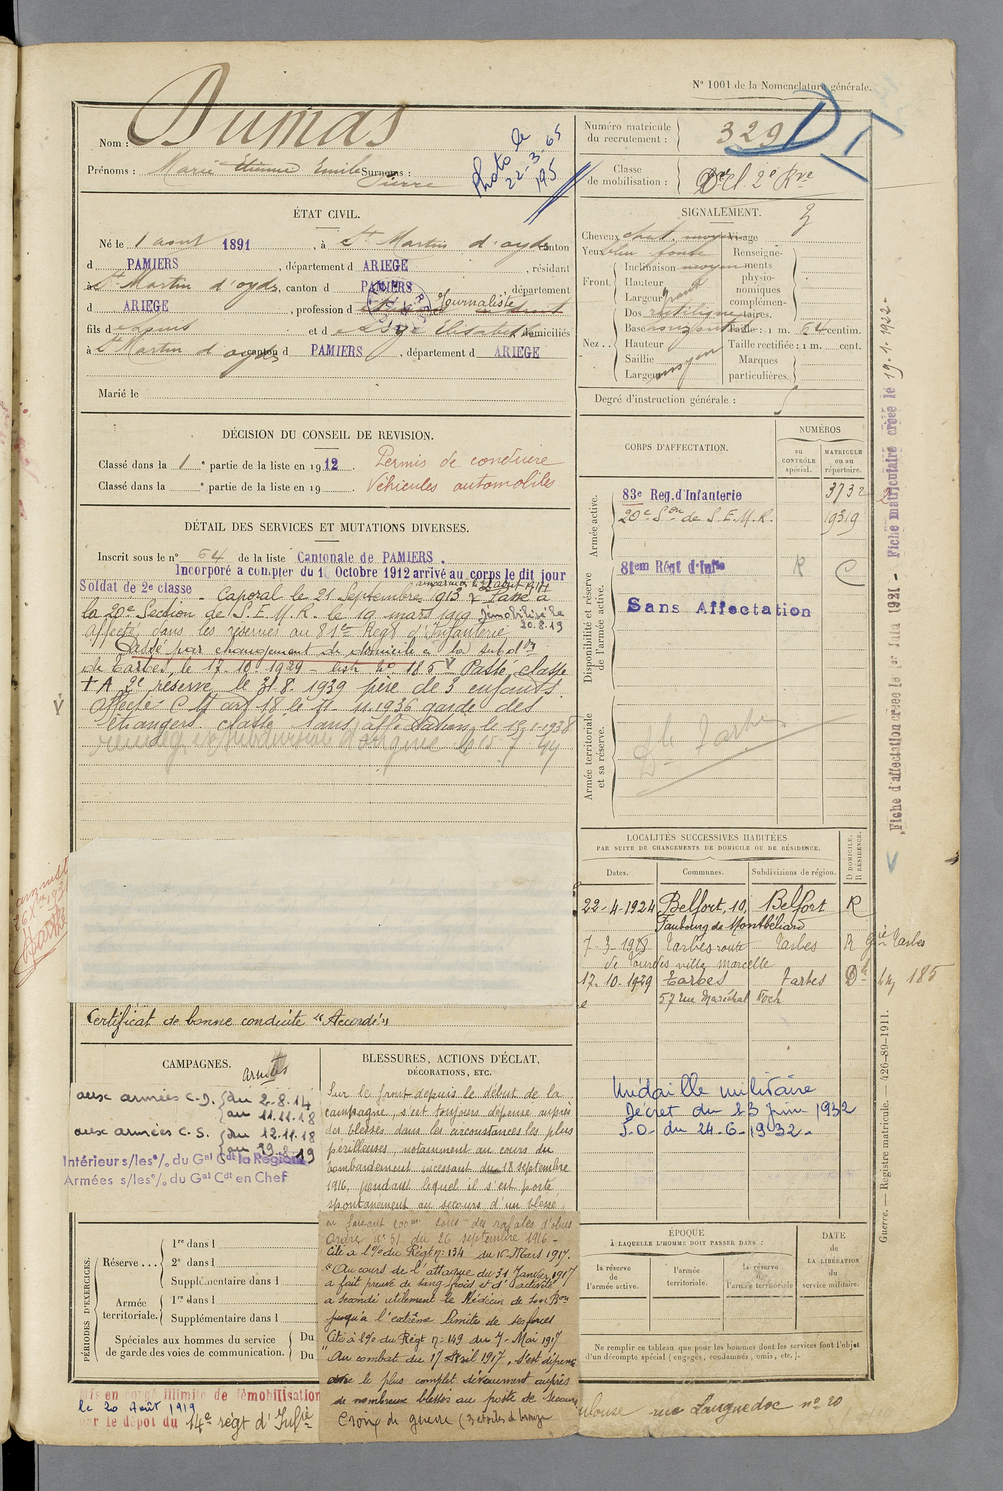 N° 1001 de la Nomenclature générale.
Nom : Dumas
Prénoms : Marie Etienne Emile Surnoms :
Pierre
Photo le
22-3-65
195
Numéro matricule
du recrutement : 329
Classe
de mobilisation :
ÉTAT CIVIL.
Né le 1 août 1891, à St Martin d'oydes canton
d PAMIERS, département d ARIEGE, résidant
à St Martin d'oydes, canton d PAMIERS, département
d ARIEGE, profession d Journaliste
fils d et d Elisabeth domiciliés
à St Martin d'oydes canton d PAMIERS, département d ARIEGE
Marié le
SIGNALEMENT.
Cheveux chat. moyen Visage
Yeux bleu foncé
Front. Inclinaison moyen
Hauteur
Largeur
Nez. Dos rectiligne
Base
Hauteur
Saillie
Largeur moyen
Renseigne-
ments
physio-
nomiques
complémen-
taires.
Taille : 1 m. 64 centim.
Taille rectifiée : 1 m. cent.
Marques
particulières.
Degré d'instruction générale :
DÉCISION DU CONSEIL DE REVISION.
Classé dans la 1e partie de la liste en 1912. Permis de conduire
Classé dans la e partie de la liste en 19 . Véhicules automobiles
CORPS D'AFFECTATION.
NUMÉROS
AU CONTRÔLE spécial.
MATRICULE ou au répertoire.
Armée active.
83e Reg. d'Infanterie 3732
20e Son de S.E.M.R. 19319
Disponibilité et réserve
de l'armée active.
81em Régt d'Infie R C
Sans Affectation
Armée territoriale
et sa réserve.
DÉTAIL DES SERVICES ET MUTATIONS DIVERSES.
Inscrit sous le n° 64 de la liste Cantonale de PAMIERS.
Incorporé a compter du 1 Octobre 1912 arrivé au corps le dit jour
Soldat de 2e classe
Caporal le 21 Septembre 1913 Passé à
la 20e Section de S.E.M.R. le 19 mars 1919 Démobilisé le
20.8.19
affecté dans les réserves au 81e Regt d'Infanterie
Passé par changement de domicile à la subdon
de Tarbes, le 17.10.1929 - liste n° 185 Passé classe
+ A 2e réserve le 31.8.1939 père de 3 enfants.
Affecté C.M art 18 le 21.11.1936 garde des
étangers classé sans affectation le 15-1-1938
Certificat de bonne conduite "Accordé"
LOCALITÉS SUCCESSIVES HABITÉES
PAR SUITE DE CHANGEMENTS DE DOMICILE OU DE RÉSIDENCE.
Dates. Communes. Subdivisions de région.
D DOMICILE.
R RÉSIDENCE.
22-4-1924 Belfort, 10, Belfort R
Faubourg de Montbéliard
7-3-1928 Tarbes route Tarbes R
de Lourdes villa Marcelle
17-10-1929 Tarbes Tarbes
57 rue Maréchal Foch
Médaille militaire
Décret du 23 juin 1932
J.O. du 24-6-1932-
CAMPAGNES.
aux armées C.D. du 2-8-14
au 11.11.18
aux armées C.S. du 12.11.18
Intérieur s/les°/° du Gal Cdt la Région
Armées s/les°/° du Gal Cdt en Chef
BLESSURES, ACTIONS D'ÉCLAT,
DÉCORATIONS, ETC.
Sur le front depuis le début de la
campagne, s'est toujours dépensé auprès
des blessés dans les circonstances les plus
périlleuses, notamment au cours du
bombardement incessant du 18 septembre
1916, pendant lequel il s'est porté
spontanément au secours d'un blessé,
en faisant 200m sous des rafales d'obus
Ordre n° 51 du 26 septembre 1916-
Cité à l'Oe du Régt n: 134 du 10 Mars 1917.
"Au cours de l'attaque du 31 Janvier 1917
a fait preuve de sang-froid et d'activité
a secondé utilement le Médecin de son Bon
jusqu'à l'extrême limite de ses forces
Cité à l'Oe du Régt n: 149 du 7 Mai 1917
"Au combat du 17 Avril 1917, s'est dépensé
avec le plus complet dévouement auprès
de nombreux blessés au poste de secours
Croix de guerre (3 étoiles de bronze
PÉRIODES D'EXERCICES.
Réserve... 1re dans l
2e dans l
Supplémentaire dans l
Armée
territoriale. 1re dans l
Supplémentaire dans l
Spéciales aux hommes du service
de garde des voies de communication. Du
Du
ÉPOQUE
À LAQUELLE L'HOMME DOIT PASSER DANS :
la réserve
de l'armée active.
l'armée
territoriale.
la réserve
de
l'armée territoriale
DATE
de
LA LIBÉRATION
du
service militaire.
Ne remplir ce tableau que pour les hommes dont les services font l'objet
d'un décompte spécial (engagés, condamnés, omis, etc.).
Mis en congé illimité de démobilisation
le 20 Août 1919
par le dépôt du 14e régt d'Infie
rue Languedoc n° 20
Fiche d'affectation créée le 1er Juin 1921 - Fiche matriculaire créée le 19.1.1922-
Tarbes
185
Guerre. — Registre matricule. — 426-89-1911.